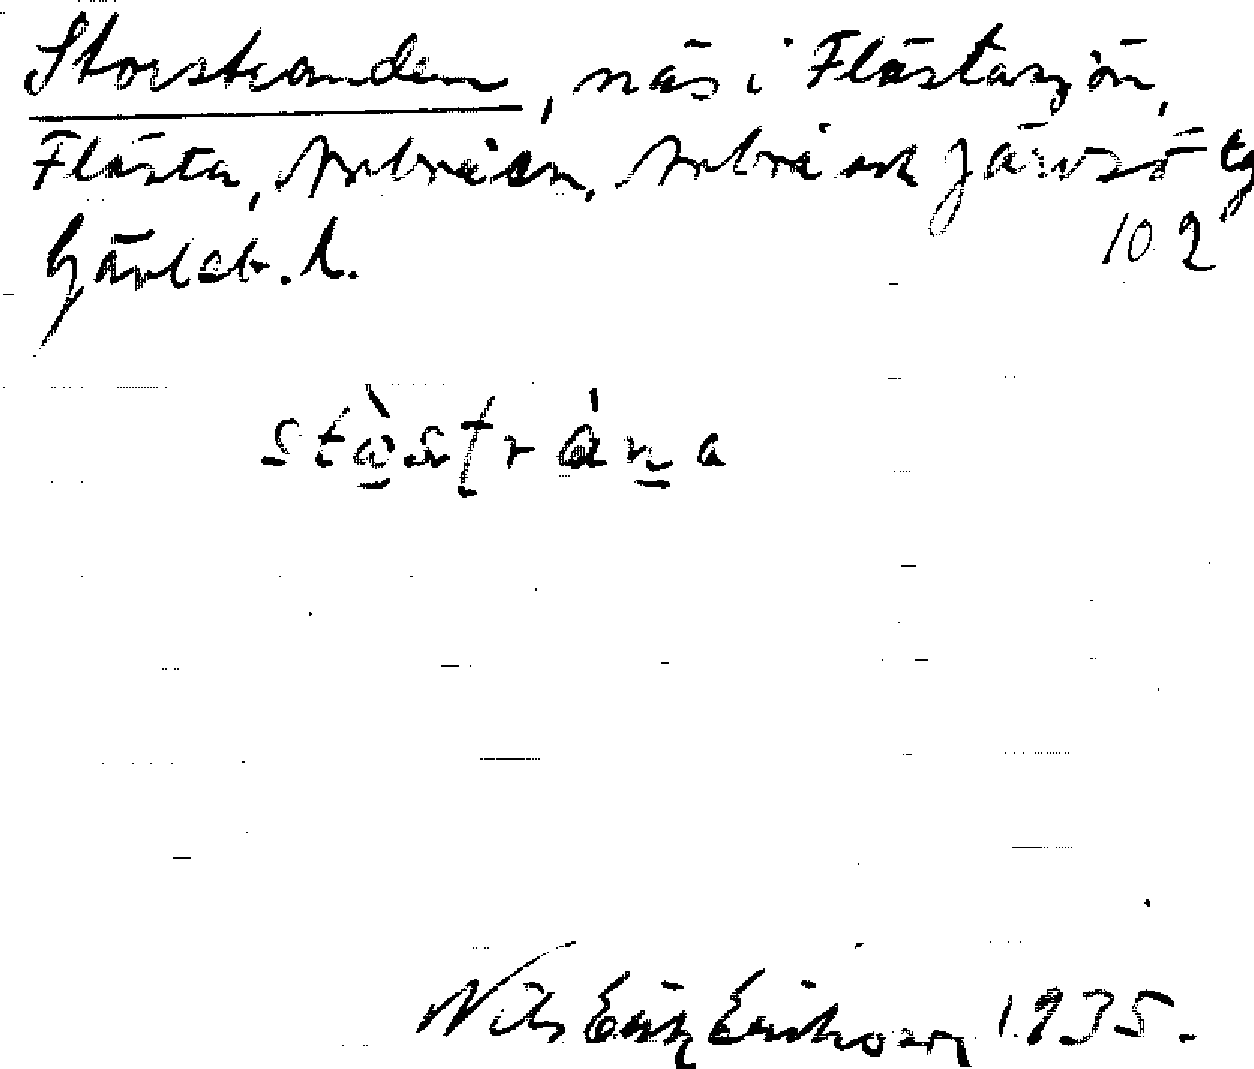 Storstranden, näs i Flästasjön,
Flästa, Arbråsn, Arbrå och Järvsö tg
Gävleb. l. 102
stòstrána
Nils Erik Eriksson 1935.